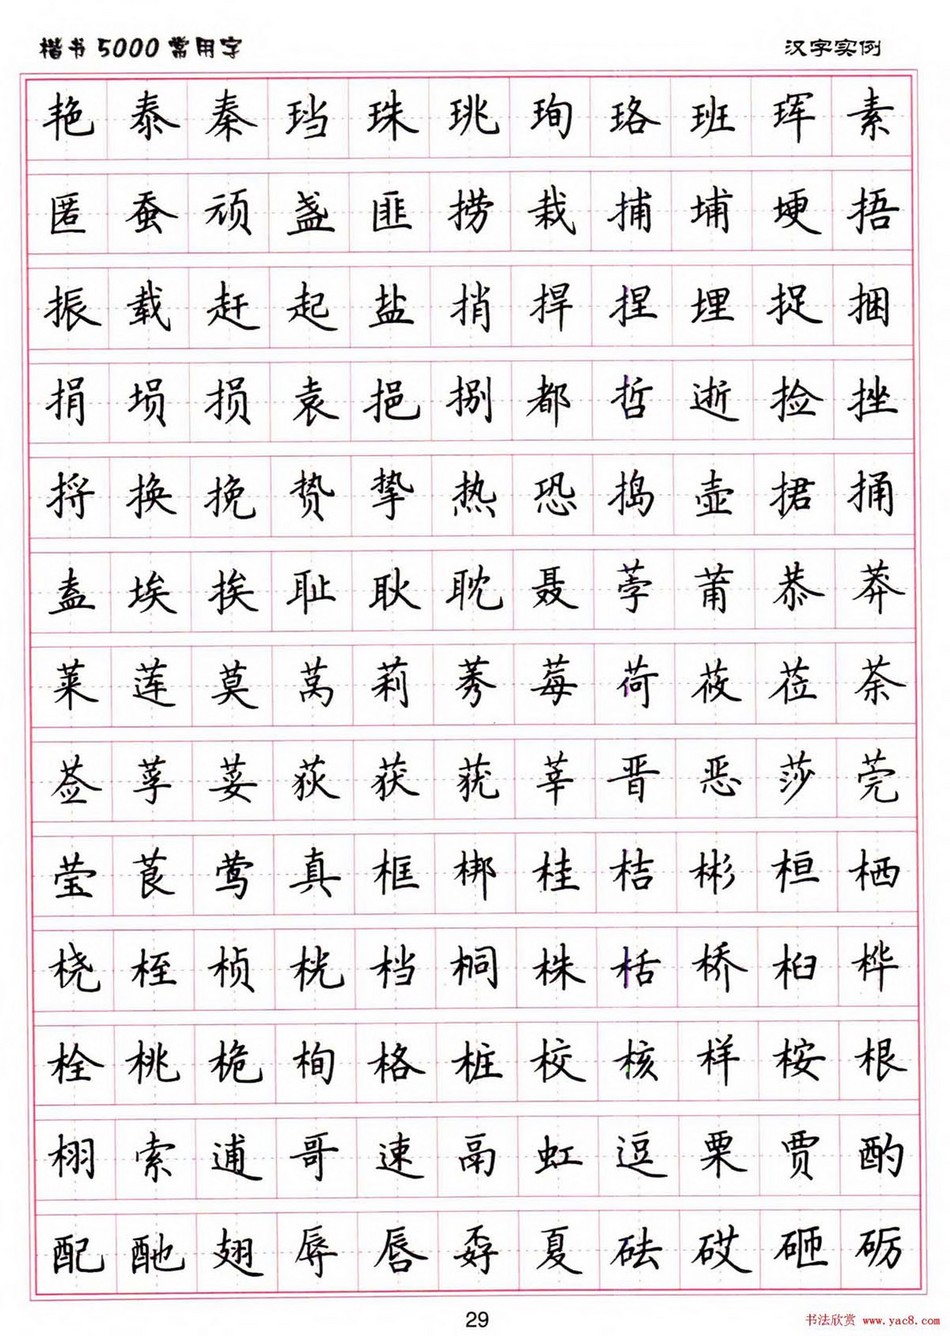 楷书5000常用字 汉字实例
艳 泰 秦 珰 珠 珧 珣 珞 班 珲 素
匿 蚕 顽 盏 匪 捞 栽 捕 埔 埂 捂
振 载 赶 起 盐 捎 捍 捏 埋 捉 捆
捐 埙 损 袁 挹 捌 都 哲 逝 捡 挫
捋 换 挽 贽 挚 热 恐 捣 壶 捃 捅
盍 埃 挨 耻 耿 耽 聂 荸 莆 恭 莽
莱 莲 莫 莴 莉 莠 莓 荷 莜 莅 荼
莶 莩 荽 荻 获 莸 莘 晋 恶 莎 莞
莹 莨 莺 真 框 梆 桂 桔 彬 桓 栖
桡 桎 桢 桄 档 桐 株 栝 桥 桕 桦
栓 桃 桅 栒 格 桩 校 核 样 桉 根
栩 索 逋 哥 速 鬲 虹 逗 栗 贾 酌
配 酏 翅 辱 唇 孬 夏 砝 砹 砸 砺
29
书法欣赏 www.yac8.com